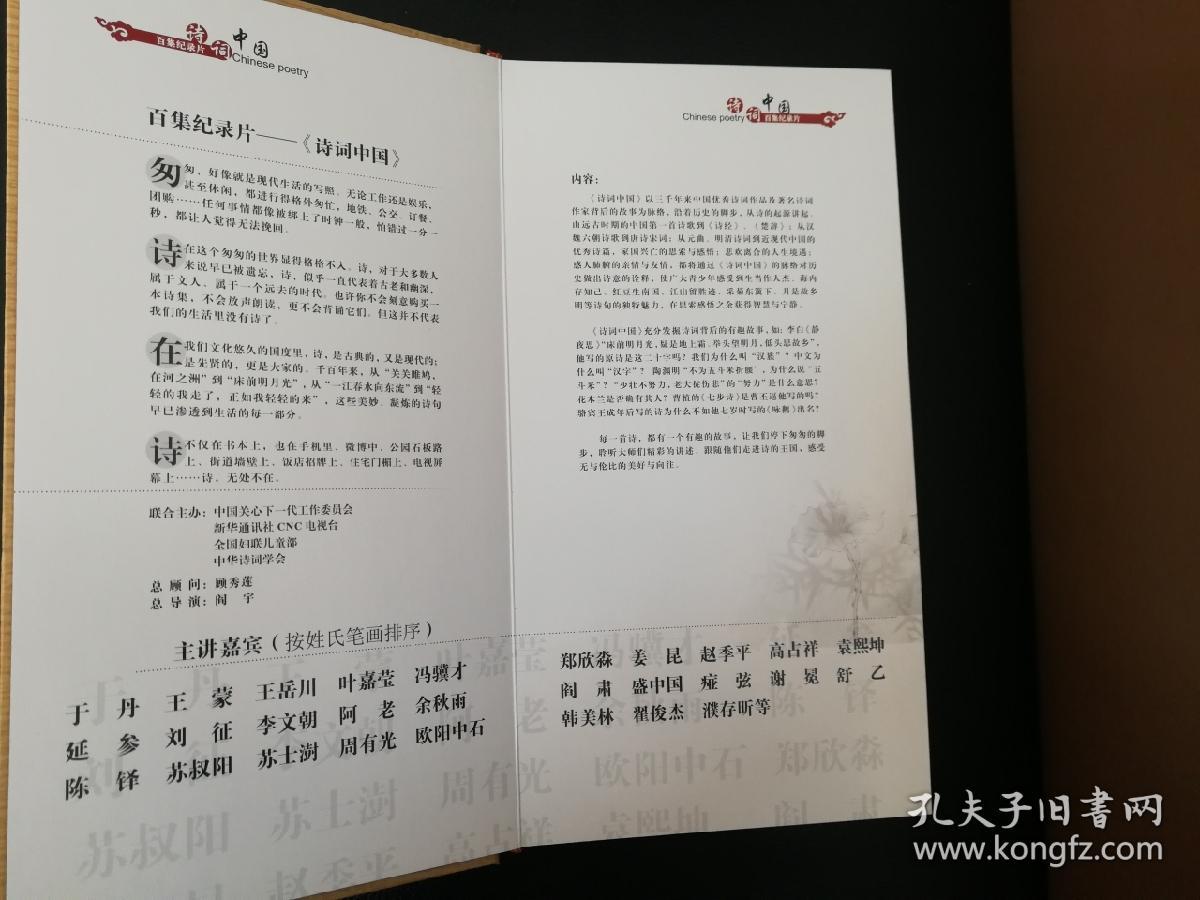 诗词中国
百集纪录片
Chinese poetry
百集纪录片——《诗词中国》
匆匆，好像就是现代生活的写照。无论工作还是娱乐，
甚至休闲，都进行得格外匆忙，地铁、公交、订餐、
团购……任何事情都像被绑上了时钟一般，怕错过一分一
秒，都让人觉得无法挽回。
诗在这个匆匆的世界显得格格不入。诗，对于大多数人
来说早已被遗忘，诗，似乎一直代表着古老和幽深，
属于文人、属于一个远去的时代。也许你不会刻意购买一
本诗集，不会放声朗读、更不会背诵它们。但这并不代表
我们的生活里没有诗了。
在我们文化悠久的国度里，诗，是古典的，又是现代的；
是圣贤的，更是大家的。千百年来，从“关关雎鸠，
在河之洲”到“床前明月光”，从“一江春水向东流”到“轻
轻的我走了，正如我轻轻的来”，这些美妙、凝炼的诗句
早已渗透到生活的每一部分。
诗不仅在书本上，也在手机里、微博中、公园石板路
上、街道墙壁上、饭店招牌上、住宅门楣上、电视屏
幕上……诗，无处不在。
联合主办：中国关心下一代工作委员会
新华通讯社CNC电视台
全国妇联儿童部
中华诗词学会
总 顾 问：顾秀莲
总 导 演：阎 宇
主讲嘉宾（按姓氏笔画排序）
于 丹 王 蒙 王岳川 叶嘉莹 冯骥才
延 参 刘 征 李文朝 阿 老 余秋雨
陈 铎 苏叔阳 苏士澍 周有光 欧阳中石
诗词中国
Chinese poetry 百集纪录片
内容：
《诗词中国》以三千年来中国优秀诗词作品及著名诗词
作家背后的故事为脉络，沿着历史的脚步，从诗的起源讲起。
由远古时期的中国第一首诗歌到《诗经》、《楚辞》；从汉
魏六朝诗歌到唐诗宋词；从元曲、明清诗词到近现代中国的
优秀诗篇，家国兴亡的思索与感悟；悲欢离合的人生境遇；
感人肺腑的亲情与友情，都将通过《诗词中国》的脉络对历
史做出诗意的诠释，使广大青少年感受到生当作人杰、海内
存知己、红豆生南国、江山留胜迹、采菊东篱下、月是故乡
明等诗句的独特魅力，在思索感悟之余获得智慧与宁静。
《诗词中国》充分发掘诗词背后的有趣故事，如：李白《静
夜思》“床前明月光，疑是地上霜。举头望明月，低头思故乡”，
他写的原诗是这二十字吗？我们为什么叫“汉族”？中文为
什么叫“汉字”？ 陶渊明“不为五斗米折腰”，为什么说“五
斗米”？“少壮不努力，老大徒伤悲”的“努力”是什么意思？
花木兰是否确有其人？曹植的《七步诗》是曹丕逼他写的吗？
骆宾王成年后写的诗为什么不如他七岁时写的《咏鹅》出名？
每一首诗，都有一个有趣的故事，让我们停下匆匆的脚
步，聆听大师们精彩的讲述。跟随他们走进诗的王国，感受
无与伦比的美好与向往。
郑欣淼 姜 昆 赵季平 高占祥 袁熙坤
阎 肃 盛中国 痖 弦 谢 冕 舒 乙
韩美林 翟俊杰 濮存昕等
孔夫子旧书网
www.kongfz.com